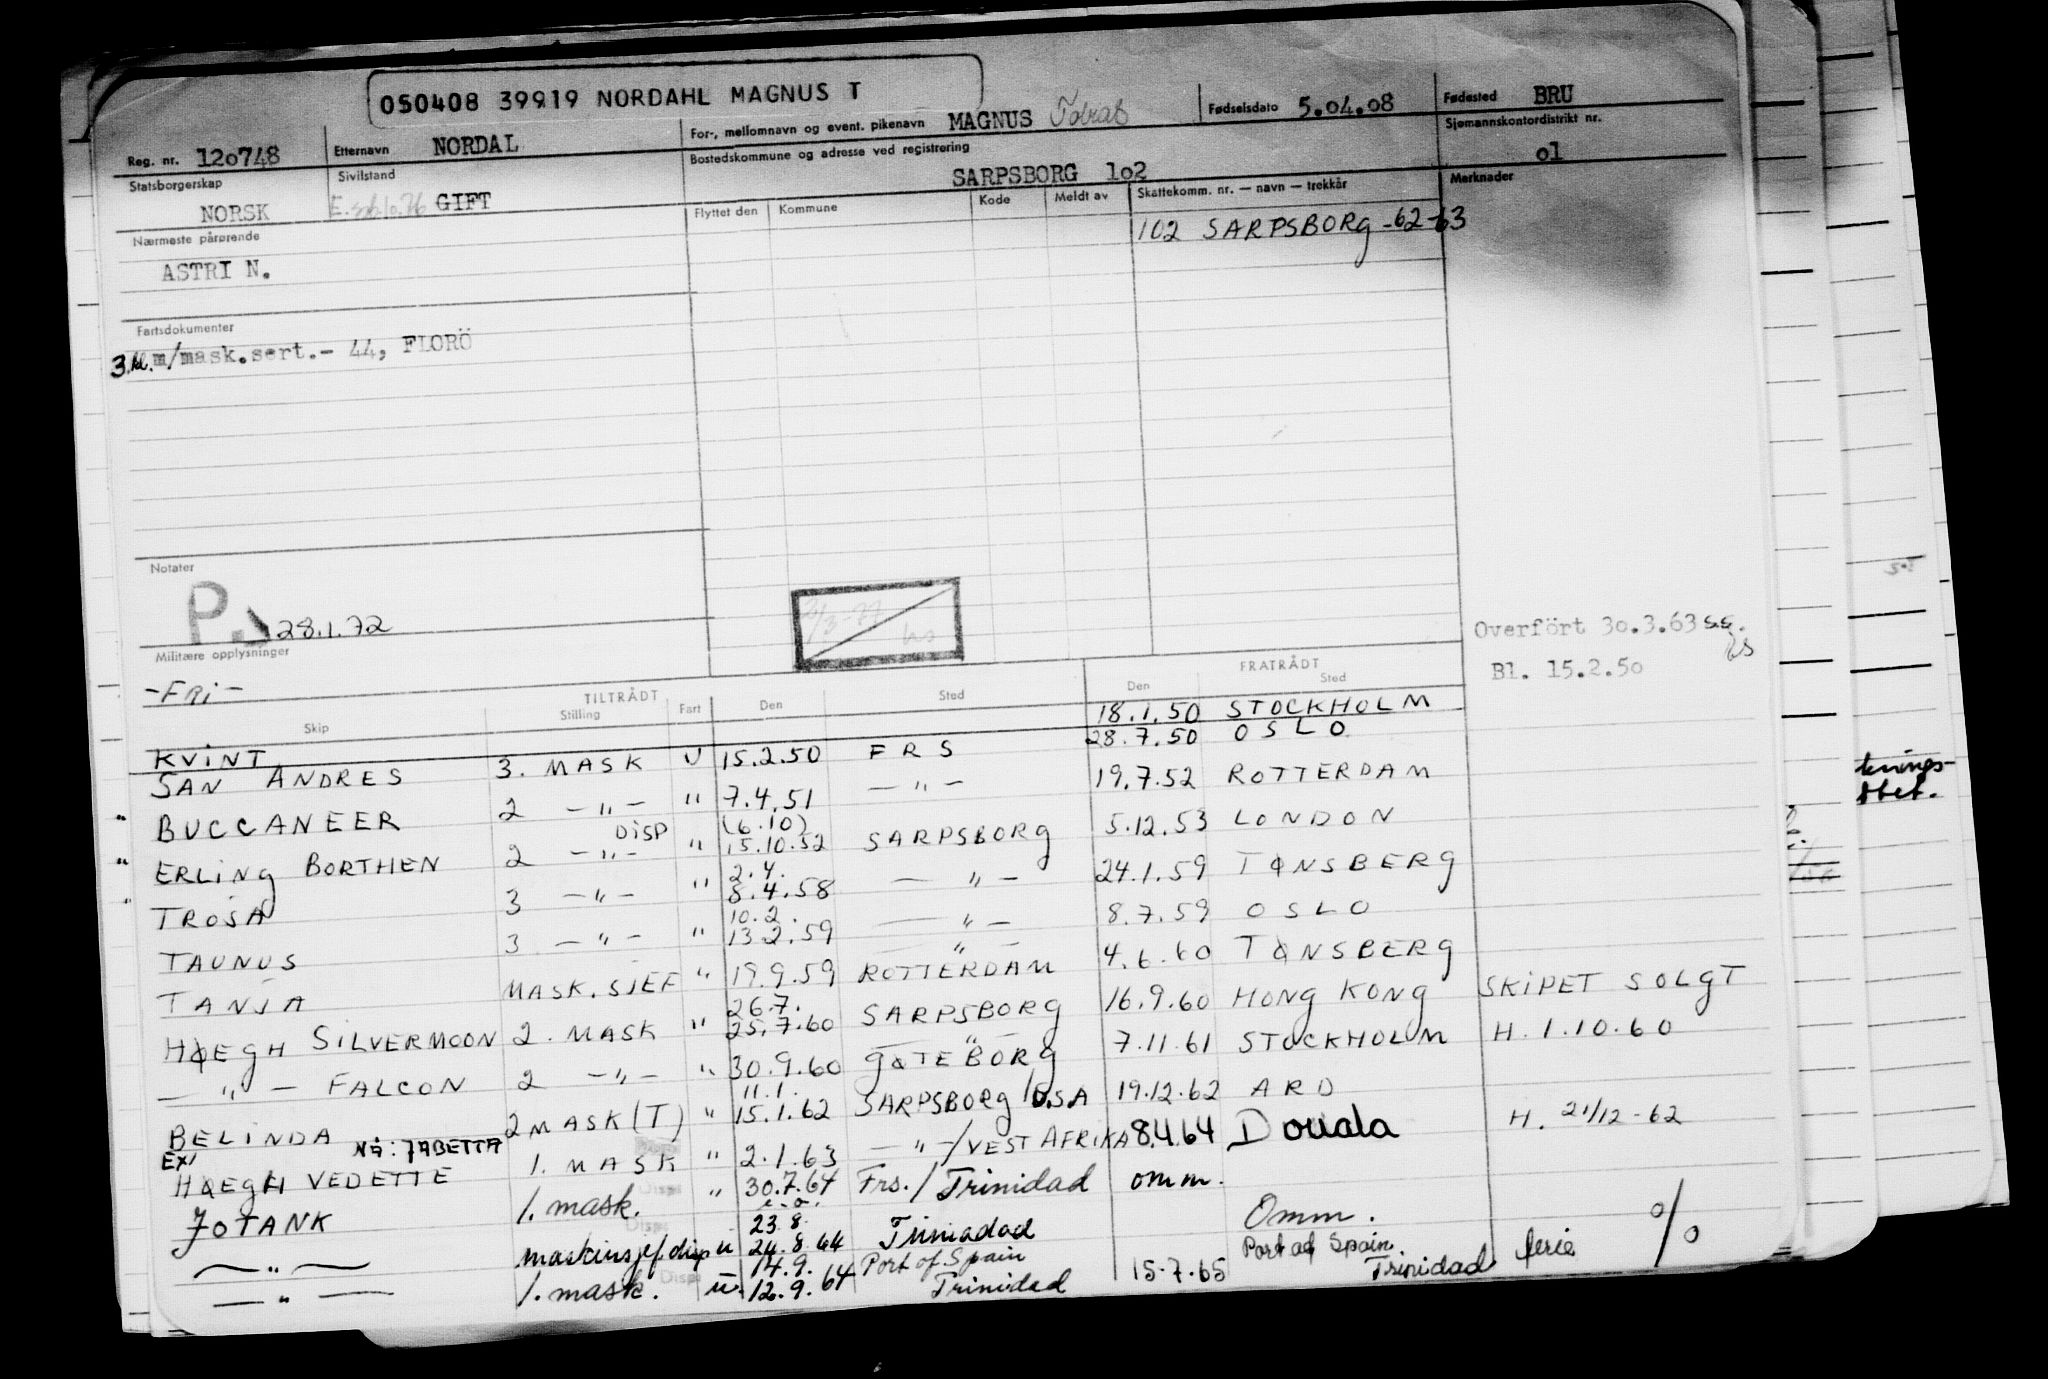 050408 39919 NORDAHL MAGNUS T
Reg. nr. 120748 Etternavn NORDAL For-, mellomnavn og event. pikenavn MAGNUS Fødselsdato 5.04.08 Fødested BRU
Statsborgerskap NORSK Sivilstand GIFT Bostedskommune og adresse ved registrering SARPSBORG 102 Sjømannskontordistrikt nr. 01
Nærmeste pårørende Flyttet den Kommune Kode Meldt av Skattekomm. nr. — navn — trekkår Merknader
ASTRI N. 102 SARPSBORG -62-63
Fartsdokumenter
3.kl. m/mask.sert.- 44, FLORÖ
Notater
P. 28.1.72
Militære opplysninger
-FRI-
Overfört 30.3.63 s.s.
Bl. 15.2.50
TILTRÅDT FRATRÅDT
Skip Stilling Fart Den Sted Den Sted
KVINT 18.1.50 STOCKHOLM
SAN ANDRES 3. MASK U 15.2.50 FRS 28.7.50 OSLO
BUCCANEER 2 — " — " 7.4.51 — " — 19.7.52 ROTTERDAM
ERLING BORTHEN 2 — " — DISP " (6.10) 15.10.52 SARPSBORG 5.12.53 LONDON
TROSA 3 — " — " 2.4. 8.4.58 — " — 24.1.59 TØNSBERG
TAUNUS 3 — " — " 10.2. 13.2.59 — " — 8.7.59 OSLO
TANJA MASK.SJEF " 19.9.59 ROTTERDAM 4.6.60 TØNSBERG
HØEGH SILVERMOON 2. MASK " 26.7. 25.7.60 SARPSBORG 16.9.60 HONG KONG SKIPET SOLGT
— " — FALCON 2 — " — " 30.9.60 GØTEBORG 7.11.61 STOCKHOLM H. 1.10.60
BELINDA 2 MASK (T) " 11.1. 15.1.62 SARPSBORG/USA 19.12.62 ARD
EX/ HØEGH VEDETTE NÅ: JABETTA 1. MASK " 2.1.63 — " —/VEST AFRIKA 8.4.64 Douala H. 21/12-62
JOTANK 1. mask. " 30.7.64 Frs./Trinidad omm.
— " — maskinsjef disp u 23.8. 24.8.64 Trinidad Omm.
— " — 1. mask. Disp u. 14.9. 12.9.64 Port of Spain Trinidad 15-7.65 Port of Spain Trinidad ferie %